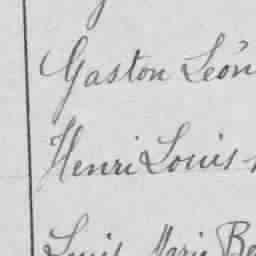 Gaston Léon
Henri Louis
Louis Marie Be